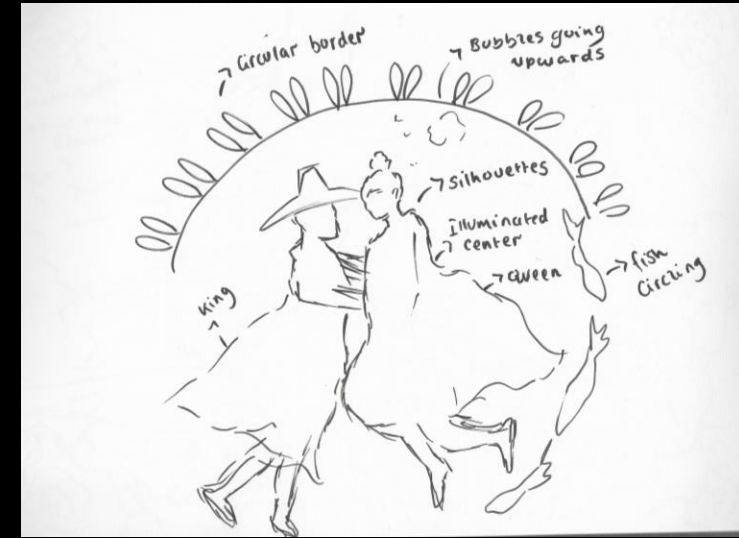 Circular border
Bubbles going
upwards
Silhouettes
Illuminated
center
Queen
fish
circling
King